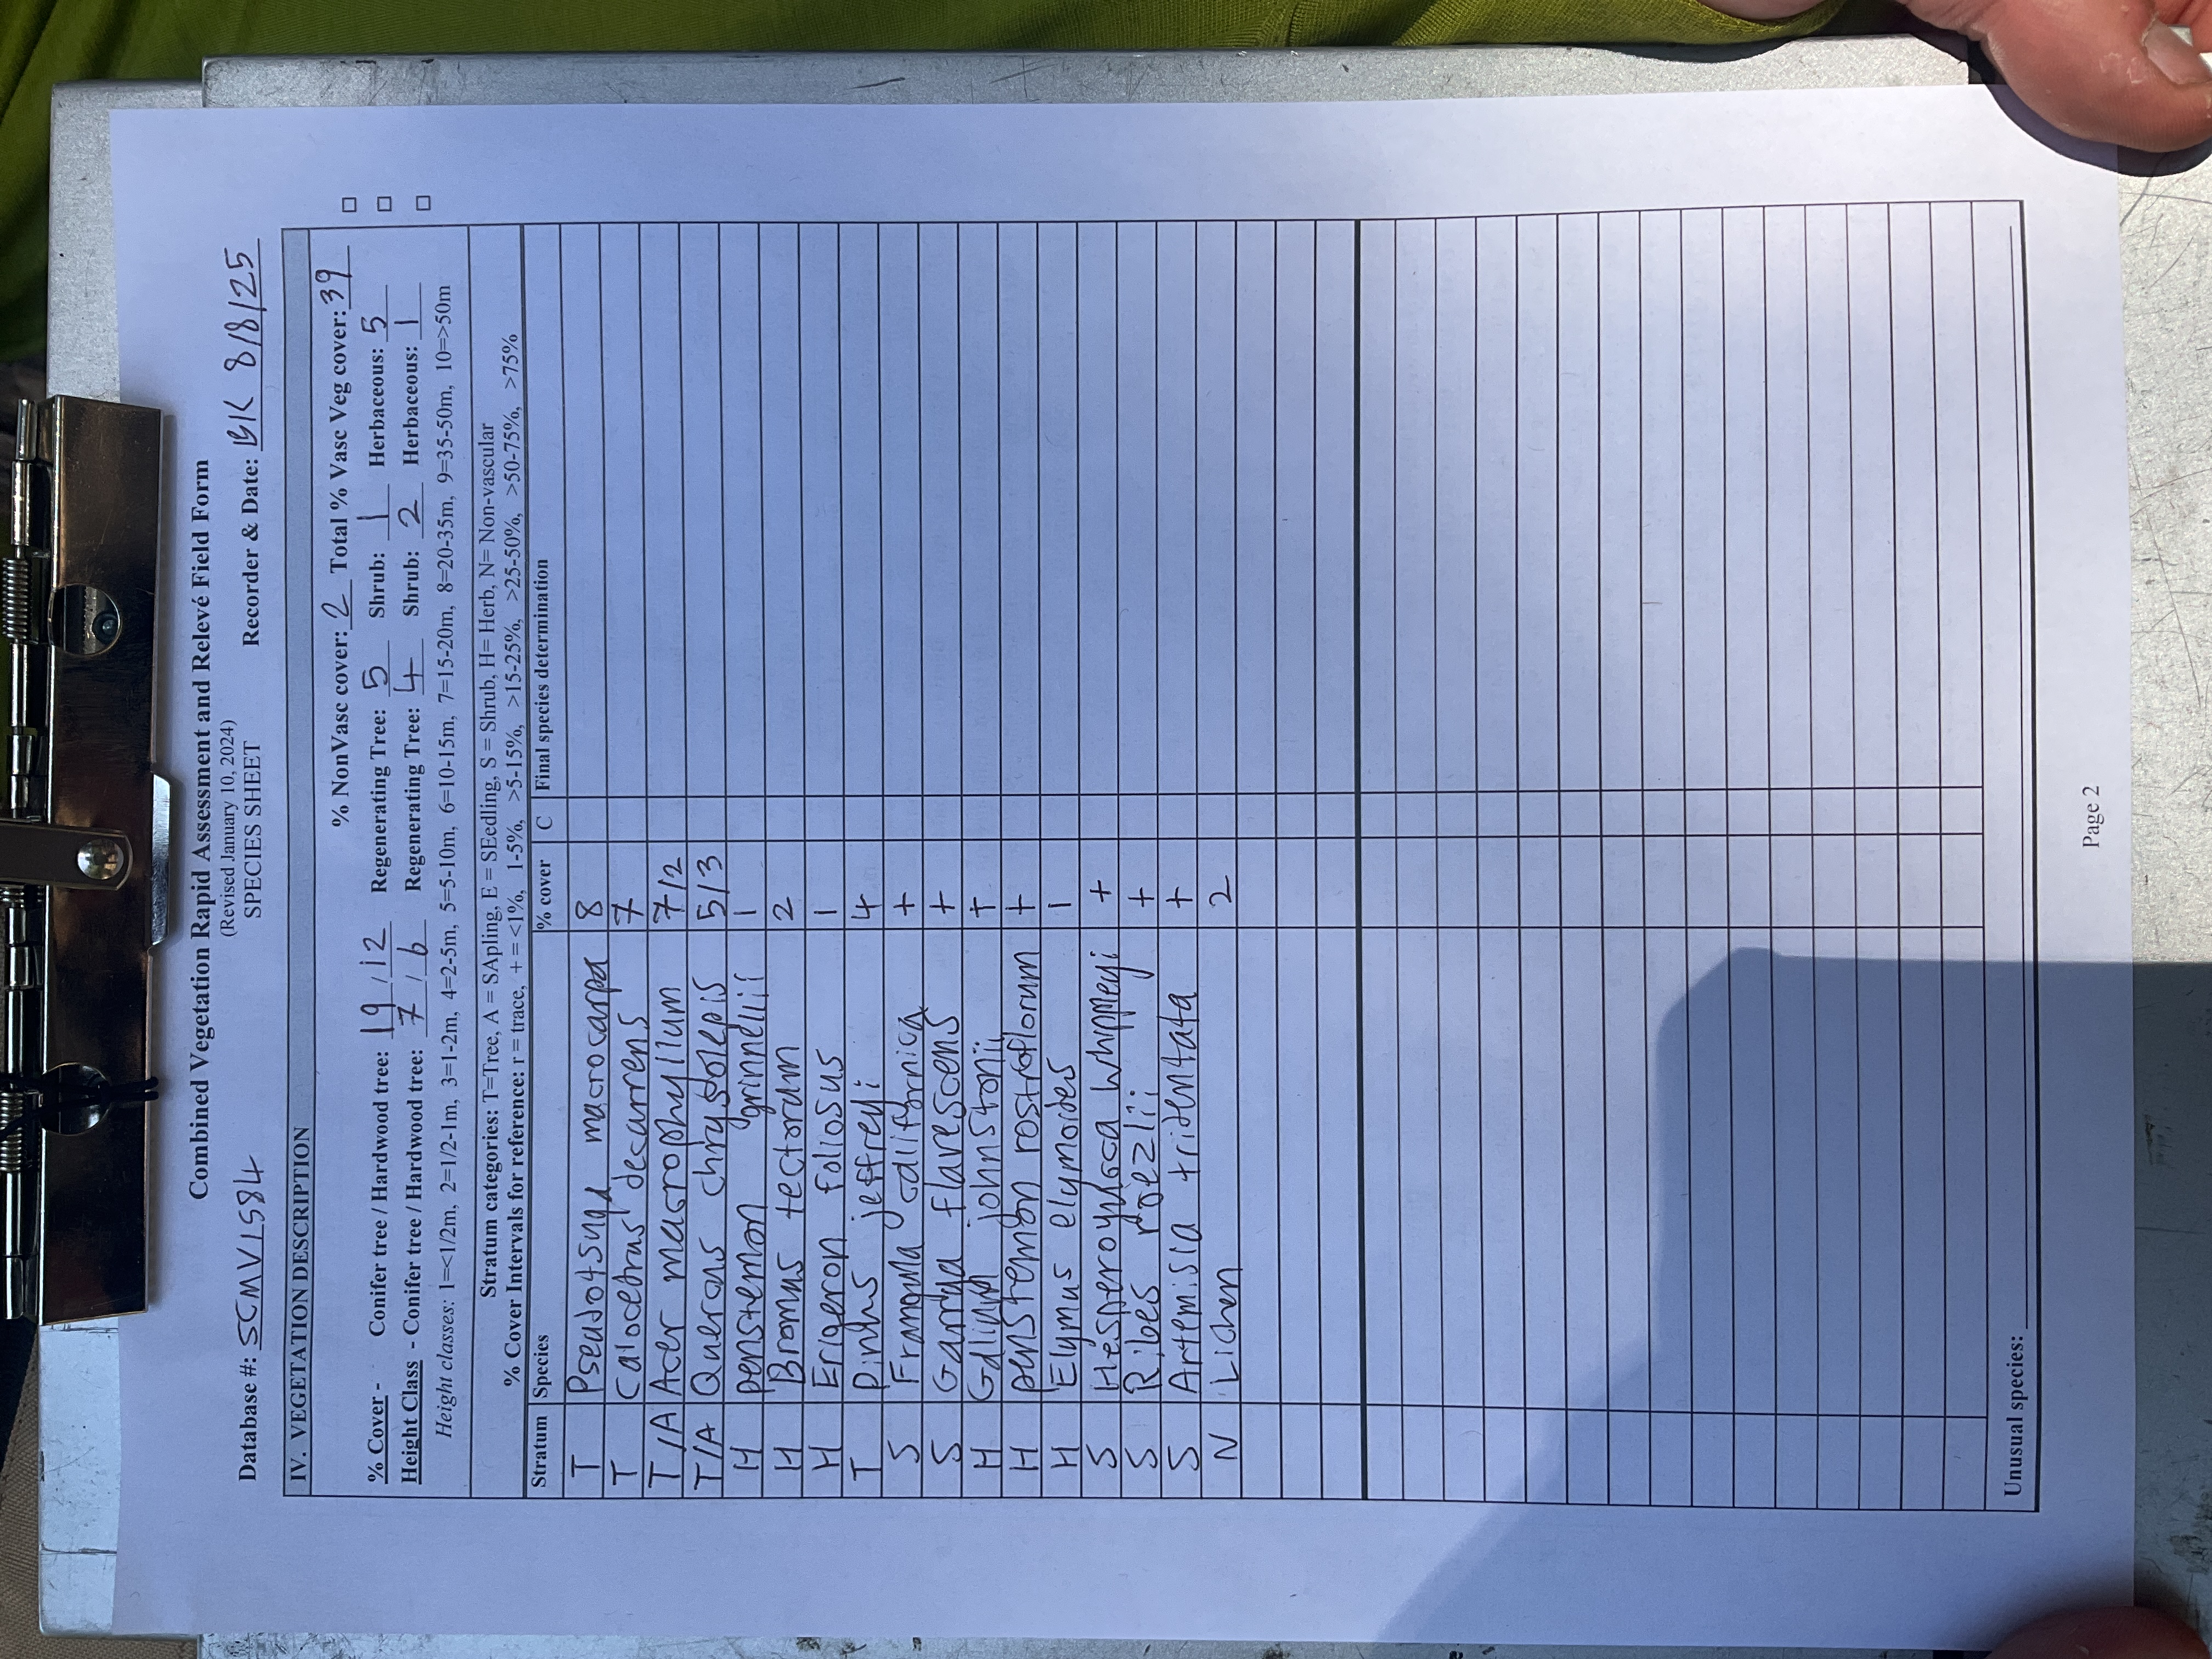 Combined Vegetation Rapid Assessment and Relevé Field Form
(Revised January 10, 2024)
SPECIES SHEET
Database #: SCMV1584 Recorder & Date: BK 8/8/25
IV. VEGETATION DESCRIPTION
% NonVasc cover: 2 Total % Vasc Veg cover: 39
% Cover - Conifer tree / Hardwood tree: 19 / 12 Regenerating Tree: 5 Shrub: 1 Herbaceous: 5
Height Class - Conifer tree / Hardwood tree: 7 / 6 Regenerating Tree: 4 Shrub: 2 Herbaceous: 1
Height classes: 1=<1/2m, 2=1/2-1m, 3=1-2m, 4=2-5m, 5=5-10m, 6=10-15m, 7=15-20m, 8=20-35m, 9=35-50m, 10=>50m
Stratum categories: T=Tree, A = SApling, E = SEedling, S = Shrub, H= Herb, N= Non-vascular
% Cover Intervals for reference: r = trace, + = <1%, 1-5%, >5-15%, >15-25%, >25-50%, >50-75%, >75%
Stratum Species % cover C Final species determination
T Pseudotsuga macrocarpa 8
T Calocedrus decurrens 7
T/A Acer macrophyllum 7/2
T/A Quercus chrysolepis 5/3
H penstemon grinnellii 1
H Bromus tectorum 2
H Erigeron foliosus 1
T Pinus jeffreyi 4
S Frangula californica +
S Garrya flavescens +
H Galium johnstonii +
H penstemon rostroflorum +
H Elymus elymoides 1
S Hesperoyucca whipplei +
S Ribes roezlii +
S Artemisia tridentata +
N Lichen 2
Unusual species:
Page 2